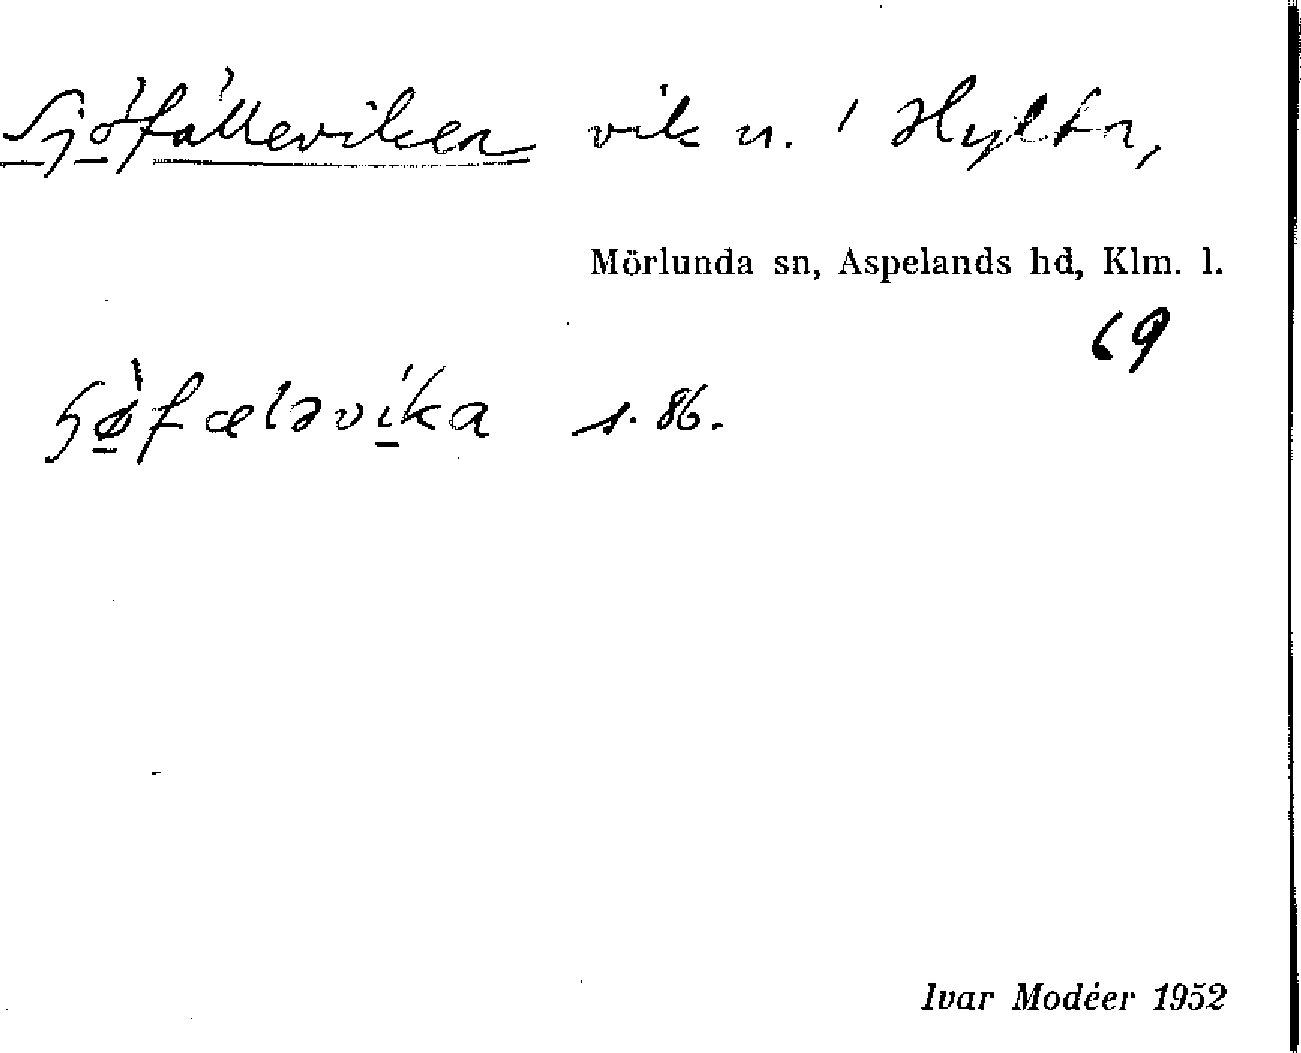 Sjöfälleviken vik n. i Hylta,
Mörlunda sn, Aspelands hd, Klm. l.
69
ɧø̀fæləvi̱ka s. 86.
Ivar Modéer 1952